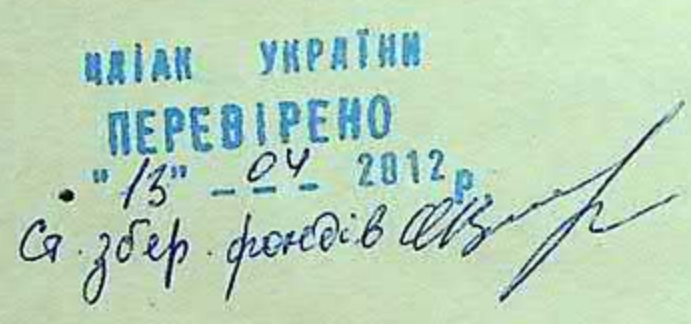 ЦДІАК УКРАЇНИ
ПЕРЕВІРЕНО
"13" 04 2012 р
Ст. збер. фондів